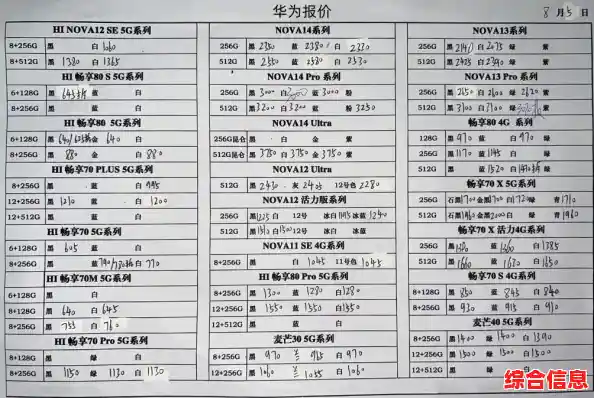 华为报价
8月5日
HI NOVA12 SE 5G系列
8+256G 黑 白 1060
8+512G 黑 1380 白 1365
HI 畅享80 S 5G系列
6+128G 黑 蓝 白
8+256G 黑 蓝 白
HI 畅享80 5G系列
6+128G 黑 金 640 白
8+256G 黑 880 金 白 880
HI 畅享70 PLUS 5G系列
8+256G 黑 蓝 白 995
12+256G 黑 1230 蓝 白 1200
12+512G 黑 蓝 白
HI 畅享70 5G系列
6+128G 黑 605 蓝 白
8+256G 黑 蓝 白 770
HI 畅享70M 5G系列
6+128G 黑 白
8+128G 黑 640 白 645
8+256G 黑 755 白 760
HI 畅享70 Pro 5G系列
8+128G 黑 绿 白
8+256G 黑 1150 绿 1130 白 1130
NOVA14系列
256G 黑 2350 蓝 2380 白 2330
512G 黑 2550 蓝 2580 白 2530
NOVA14 Pro 系列
256G 黑 3000 白 蓝 3000 粉
512G 黑 3200 白 3200 蓝 粉 3250
NOVA14 Ultra
256G昆仑 黑 白 金 紫
512G昆仑 黑 3750 白 3750 金 3750 紫
NOVA12 Ultra
512G 黑 2430 灰 2425 12号色 2280
NOVA12 活力版系列
256G 黑 1225 白 12号 冰白 冰蓝 1240
512G 黑 1510 白 1500 12号 冰白 冰蓝
NOVA11 SE 4G系列
8+256G 黑 白 1045 11号色 1045
HI 畅享80 Pro 5G系列
8+256G 黑 1300 蓝 1280 白 1280
12+256G 黑 1550 蓝 1550 白 1550
12+512G 黑 蓝 白
麦芒30 5G系列
8+256G 黑 970 兰 965 白 970
12+256G 黑 1060 兰 1055 白 1060
NOVA13系列
256G 黑 2140 白 2075 绿 紫
512G 黑 2425 白 2390 绿 紫
NOVA13 Pro系列
256G 黑 2650 白 2600 绿 2620 紫
512G 黑 3100 白 3100 绿 紫
畅享80 4G 系列
128G 黑 970 蓝 白 970 绿
256G 黑 1170 蓝 1145 白 绿
512G 黑 蓝 1520 白 绿
畅享70 X 5G系列
256G 石黑 1700 金黑 1700 白 1720 绿 青 1710
512G 石黑 1960 金黑 2000 白 绿 青 1960
畅享70 X 活力4G系列
256G 黑 蓝 1360 白 1385
512G 黑 1660 蓝 1630 白 1650
畅享70 S 4G系列
8+128G 黑 850 蓝 845 白 840
8+256G 黑 930 蓝 915 白 910
麦芒40 5G系列
8+256G 黑 1400 绿 1400 白 1390
12+256G 黑 1500 绿 1500 白 1500
12+512G 黑 绿 白
综合信息